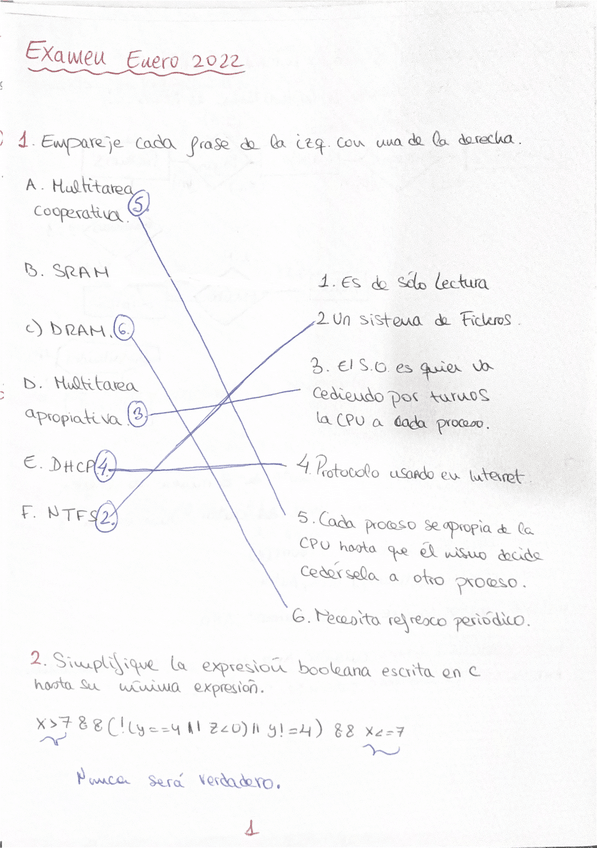 Examen Enero 2022
1. Empareje cada frase de la izq. con una de la derecha.
A. Multitarea
cooperativa. 5.
B. SRAM
C) DRAM. 6.
D. Multitarea
apropiativa. 3.
E. DHCP 4.
F. NTFS 2.
1. Es de sólo Lectura
2 Un sistema de Ficheros.
3. El S.O. es quien va
cediendo por turnos
la CPU a cada proceso.
4. Protocolo usando en Internet.
5. Cada proceso se apropia de la
CPU hasta que él mismo decide
cedérsela a otro proceso.
6. Necesita refresco periódico.
2. Simplifique la expresión booleana escrita en C
hasta su mínima expresión.
x>7 && (!(y==4 || z<0) || y!=4) && x<=7
Nunca será verdadero.
1